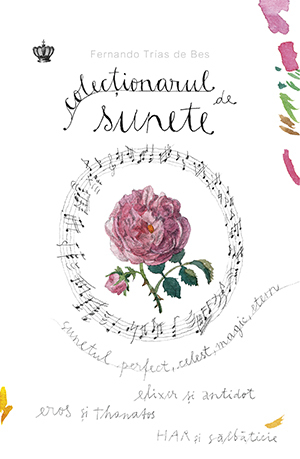 Fernando Trías de Bes
colecționarul de
sunete
sunetul perfect, celest, magic, etern
elixir și antidot
eros și thanatos
HAR și sălbăticie